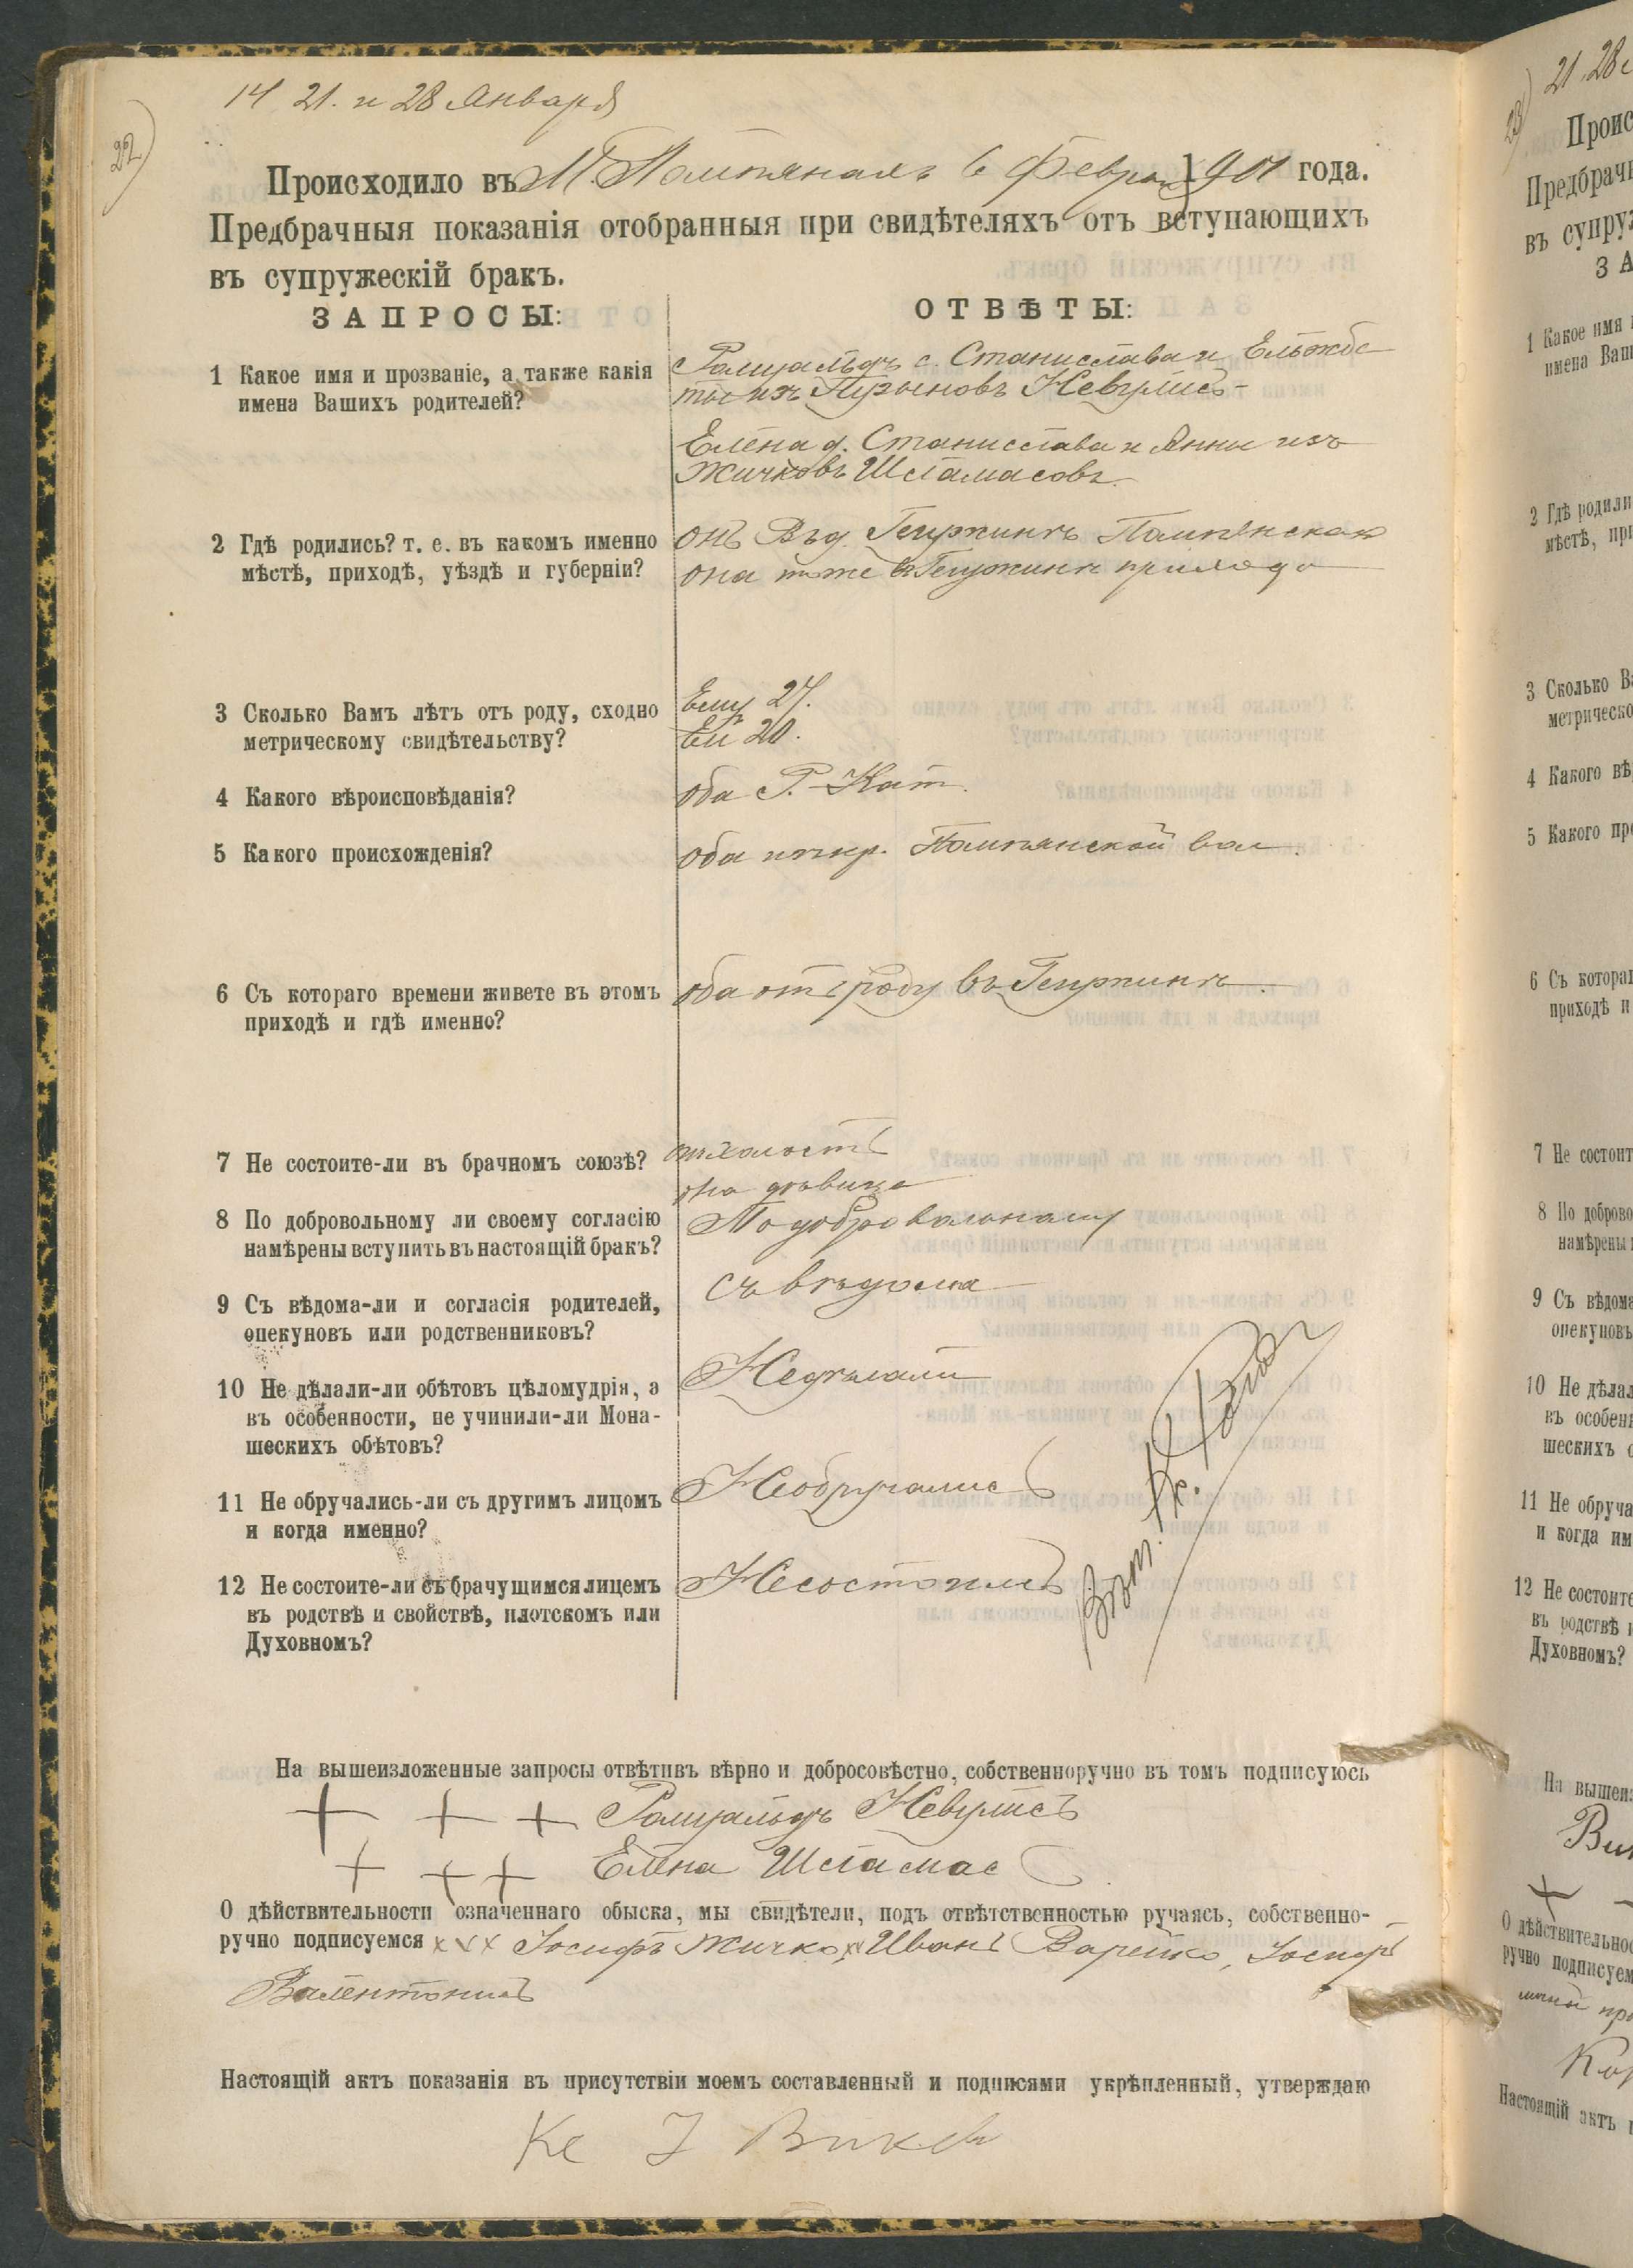 14 21. и 28 Января
22)
Происходило въ М. Помпянахъ 6 Февра 1901 года.
Предбрачныя показанія отобранныя при свидѣтеляхъ отъ вступающихъ
въ супружескій бракъ.
ЗАПРОСЫ:
ОТВѢТЫ:
1 Какое имя и прозваніе, а также какія
имена Вашихъ родителей?
Ромуальдъ с. Станислава и Ельжбе
ты изъ Пузыновъ Невулисъ
Елена д. Станислава и Анны изъ
Жичковъ Шламасовъ
2 Гдѣ родились? т. е. въ какомъ именно
мѣстѣ, приходѣ, уѣздѣ и губерніи?
онъ Въ д.
она тоже въ прихода
3 Сколько Вамъ лѣтъ отъ роду, сходно
метрическому свидѣтельству?
Ему 27.
Ей 20.
4 Какого вѣроисповѣданія?
оба Р. Кат.
5 Какого происхожденія?
оба изъ кр. Помпянской вол.
6 Съ котораго времени живете въ этомъ
приходѣ и гдѣ именно?
оба отъ роду въ
7 Не состоите-ли въ брачномъ союзѣ?
онъ холостъ
она дѣвица
8 По добровольному ли своему согласію
намѣрены вступить въ настоящій бракъ?
По добровольному
9 Съ вѣдома-ли и согласія родителей,
опекуновъ или родственниковъ?
съ вѣдома
10 Не дѣлали-ли обѣтовъ цѣломудрія, а
въ особенности, не учинили-ли Мона-
шескихъ обѣтовъ?
Недѣлали
11 Не обручались-ли съ другимъ лицомъ
и когда именно?
Необручались
12 Не состоите-ли съ брачущимся лицемъ
въ родствѣ и свойствѣ, плотскомъ или
Духовномъ?
Несостоимъ
На вышеизложенные запросы отвѣтивъ вѣрно и добросовѣстно, собственноручно въ томъ подписуюсь
+ + + Ромуальдъ Невулисъ
+ + + Елена Шламас
О дѣйствительности означеннаго обыска, мы свидѣтели, подъ отвѣтственностью ручаясь, собственно-
ручно подписуемся x x x Іосифъ Жичко, Иванъ Варейко, Іосифъ
Валентонисъ
Настоящій актъ показанія въ присутствіи моемъ составленный и подписями укрѣпленный, утверждаю
21. 28
23)
Проис
Предбрачн
въ супруж
ЗА
1 Какое имя
имена Ваш
2 Гдѣ родили
мѣстѣ, при
3 Сколько В
метрическо
4 Какого вѣ
5 Какого пр
6 Съ котора
приходѣ и
7 Не состоит
8 По доброво
намѣрены
9 Съ вѣдома
опекуновъ
10 Не дѣлал
въ особенн
шескихъ о
11 Не обруча
и когда им
12 Не состоите
въ родствѣ и
Духовномъ?
На вышеиз
О дѣйствительнос
ручно подписуем
Настоящій актъ